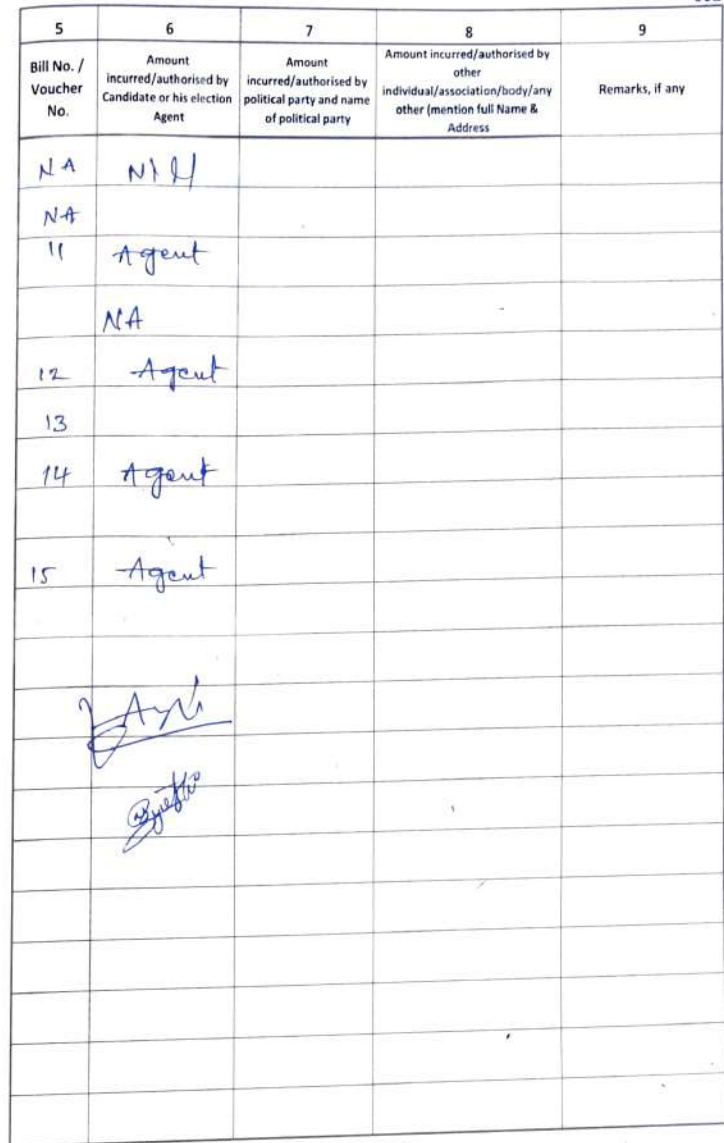 5 6 7 8 9
Bill No. / Voucher No.
Amount incurred/authorised by Candidate or his election Agent
Amount incurred/authorised by political party and name of political party
Amount incurred/authorised by other individual/association/body/any other (mention full Name & Address
Remarks, if any
NA Nil
NA
11 Agent
NA
12 Agent
13
14 Agent
15 Agent